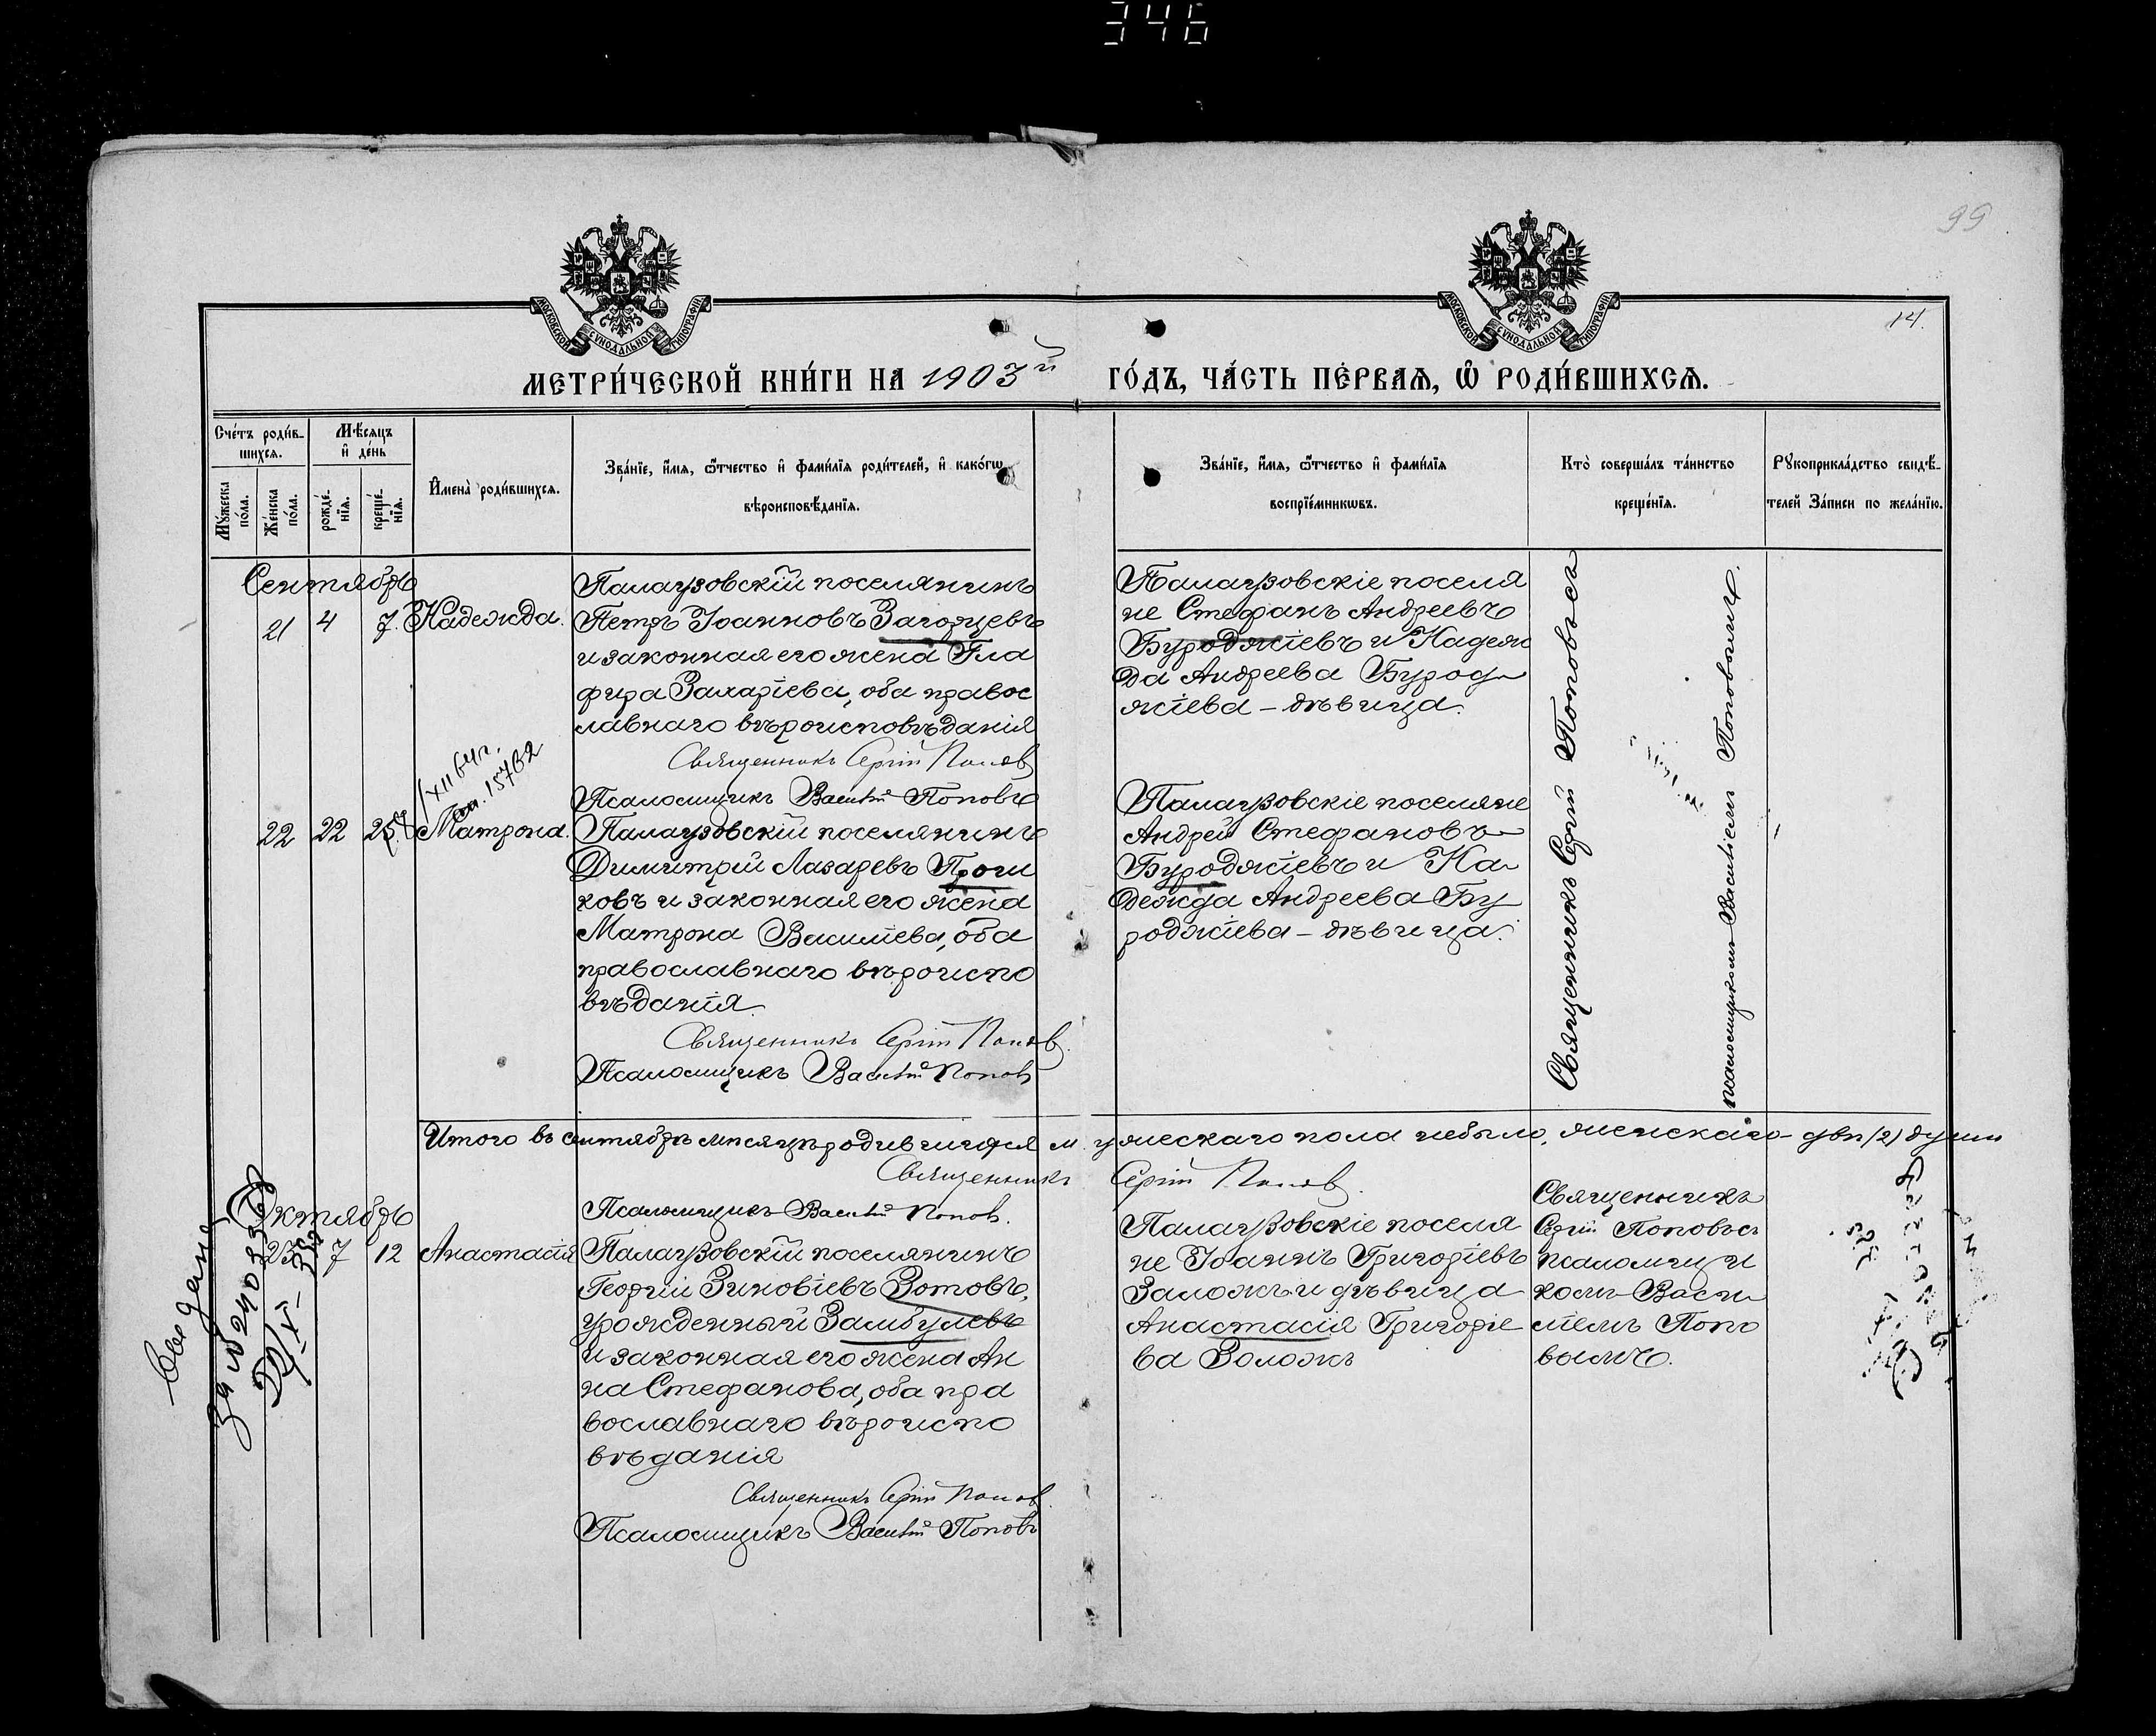 346
99
14.
МОСКОВСКОЙ СѴНОДАЛЬНОЙ ТИПОГРАФІИ
МОСКОВСКОЙ СѴНОДАЛЬНОЙ ТИПОГРАФІИ
МЕТРИ́ЧЕСКОЙ КНИ́ГИ НА 1903й ГО́ДЪ, ЧА́СТЬ ПЕ́РВАѦ, Ѽ РОДИ́ВШИХСѦ.
Сче́тъ роди́в-
шихсѧ.
Мѣ́сѧцъ
и҆ де́нь
Му́жеска
по́ла.
Же́нска
по́ла.
рожде́-
нїѧ.
креще́-
нїѧ.
И҆мена̀ роди́вшихсѧ.
Зва́нїе, и҆́мѧ, ѻ҆́тчество и҆ фами́лїѧ роди́телей, и҆ како́гѡ
вѣроисповѣ́данїѧ.
Зва́нїе, и҆́мѧ, ѻ҆́тчество и҆ фами́лїѧ
воспрїе́мникѡвъ.
Кто̀ соверша́лъ та́инство
креще́нїѧ.
Рꙋкоприкла́дство свидѣ́-
телей За́писи по жела́нїю.
Сентябрь
21 4 7. Надежда.
Палаузовскій поселянинъ
Петръ Іоанновъ Загорцевъ
и законная его жена Гла
фира Захаріева, оба правос
лавнаго вѣроисповѣданія
Священникъ Сергій Поповъ
Псаломщикъ Василій Поповъ
Палаузовскіе поселя
не Стефанъ Андреевъ
Буроджіевъ и Надеж
да Андреева Бурод
жіева – дѣвица.
Священникъ Сергій Поповъ съ
псаломщикомъ Василіемъ Поповымъ.
22 22 25 Матрона.
Палаузовскій поселянинъ
Димитрій Лазаревъ Прош
ковъ и законная его жена
Матрона Василіева, оба
православнаго вѣроиспо
вѣданія.
Священникъ Сергій Поповъ.
Псаломщикъ Василій Поповъ
Палаузовскіе поселяне
Андрей Стефановъ
Буроджіевъ и На
дежда Андреева Бу
роджіева – дѣвица.
Итого въ сентябрѣ мѣсяцѣ родившихся мужескаго пола небыло, женскаго – двѣ /2/ души
Священникъ Сергій Поповъ.
Псаломщикъ Василій Поповъ.
Октябрь
23 7 12 Анастасія
Палаузовскій поселянинъ
Георгій Зиновіевъ Зотовъ,
урожденный Замбулевъ
и законная его жена Ан
на Стефанова, оба пра
вославнаго вѣроиспо
вѣданія
Священникъ Сергій Поповъ.
Псаломщикъ Василій Поповъ
Палаузовскіе поселя
не Іоаннъ Григоріевъ
Заложъ и дѣвица
Анастасія Григоріе
ва Золожъ
Священникъ
Сергій Поповъ съ
псаломщи
комъ Васи
ліемъ Попо
вымъ.
Выдана